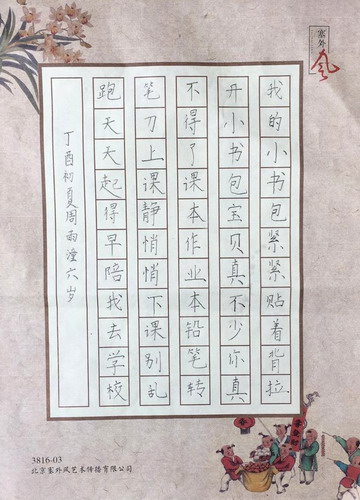 塞外风
我的小书包紧紧贴着背拉
开小书包宝贝真不少你真
不得了课本作业本铅笔转
笔刀上课静悄悄下课别乱
跑天天起得早陪我去学校
丁酉初夏周雨潼六岁
3816-03
北京塞外风艺术传播有限公司